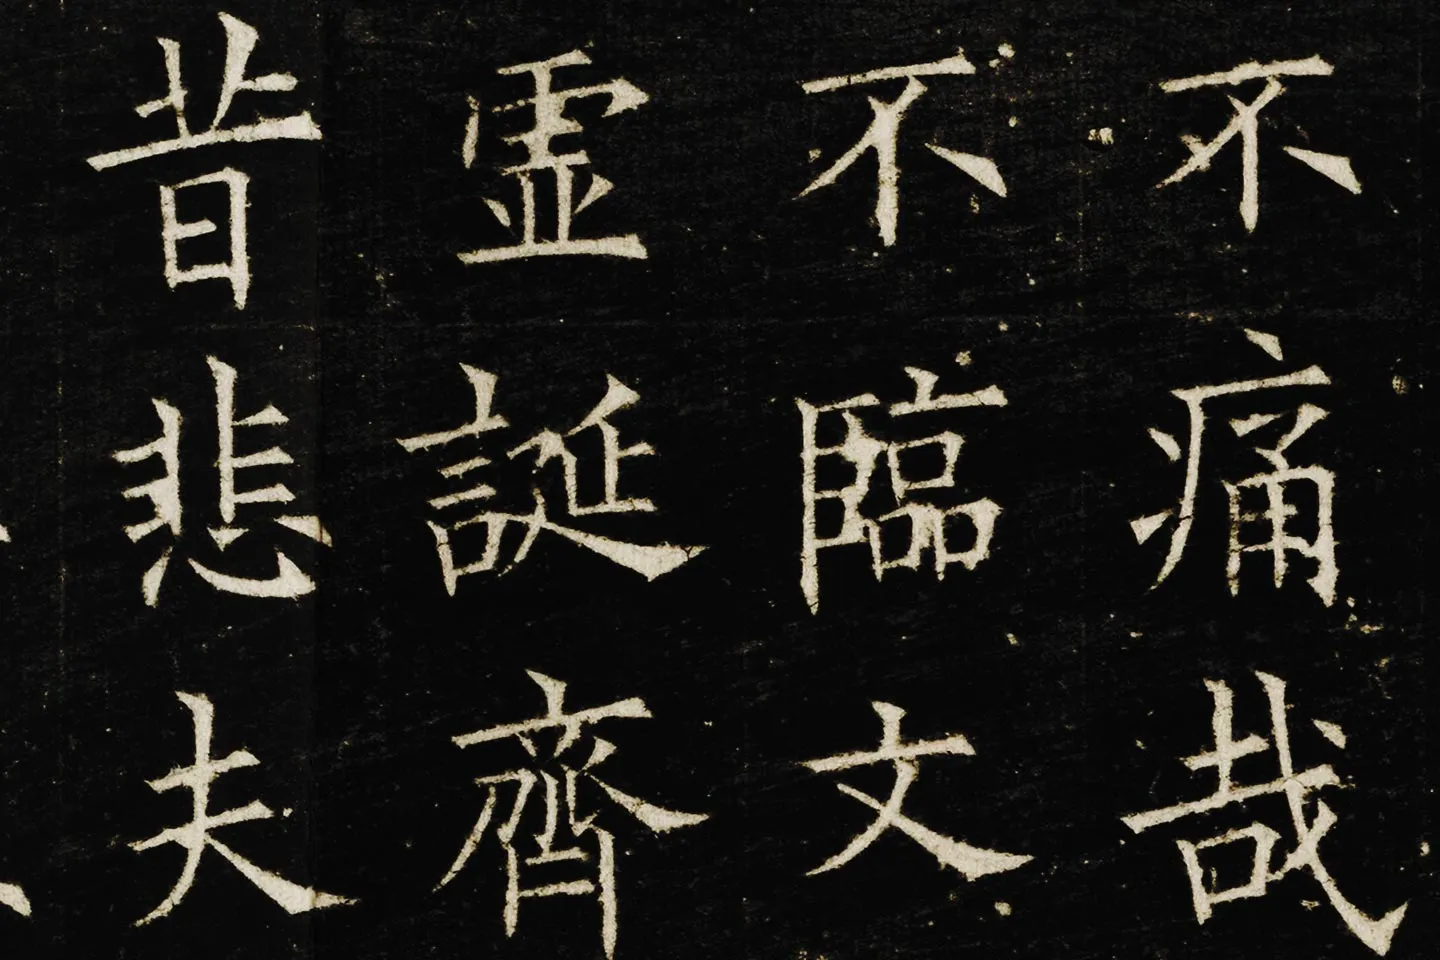 不痛哉
不臨文
虚誕齊
昔悲夫